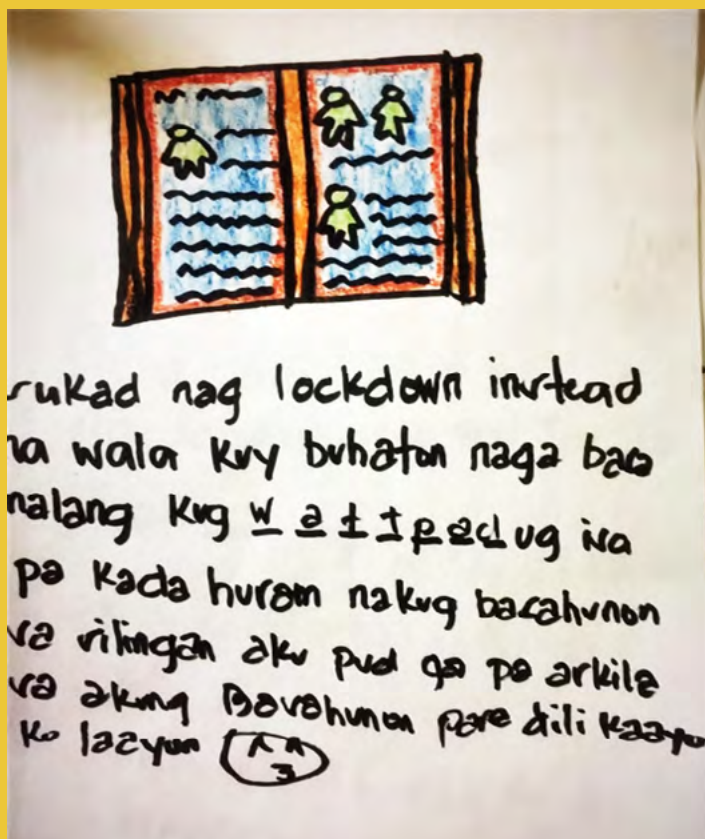 sukad nag lockdown instead
na wala kuy buhaton naga basa
nalang kug wattpad ug isa
pa kada huram nakug basahunon
sa silingan aku pud ga pa arkila
sa akung Basahunon para dili kaayu
ko laayun